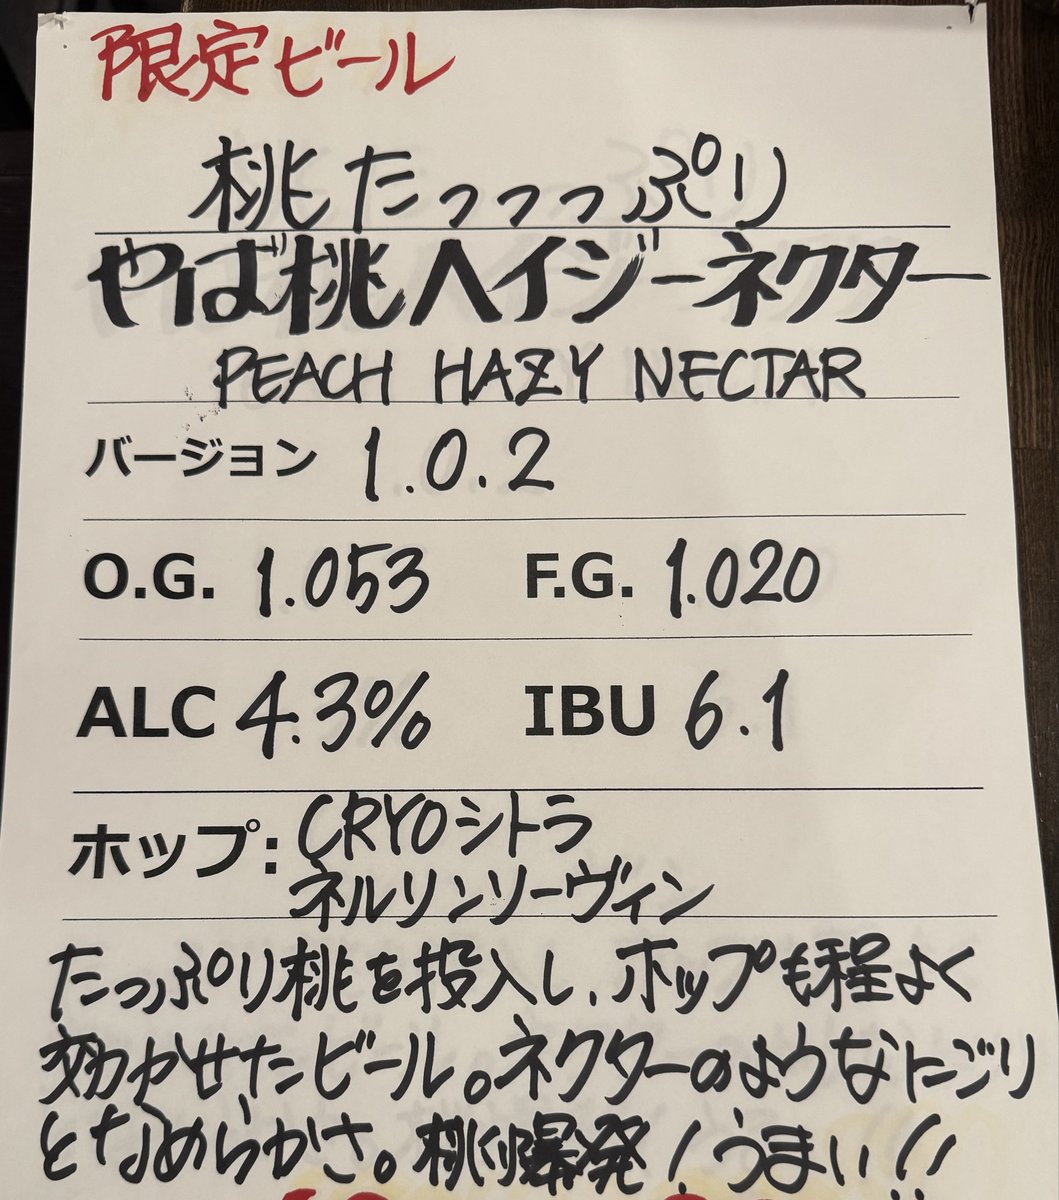 限定ビール
桃たっっっぷり
やば桃ヘイジーネクター
PEACH HAZY NECTAR
バージョン 1.0.2
O.G. 1.053 F.G. 1.020
ALC 4.3% IBU 6.1
ホップ: CRYOシトラ
ネルソンソーヴィン
たっぷり桃を投入し、ホップも程よく
効かせたビール。ネクターのようなにごり
となめらかさ。桃爆発!うまい!!